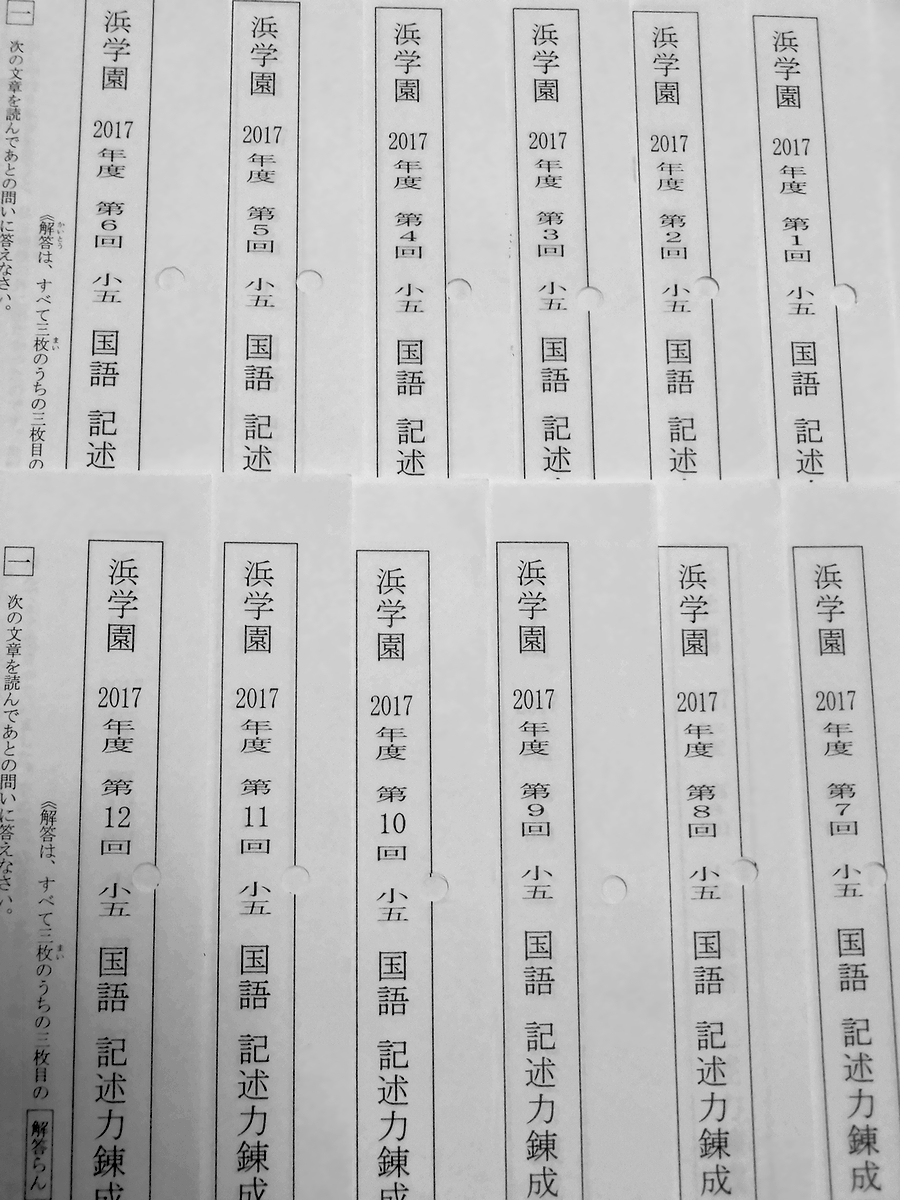 浜学園 2017年度 第1回 小五 国語 記述
浜学園 2017年度 第2回 小五 国語 記述
浜学園 2017年度 第3回 小五 国語 記述
浜学園 2017年度 第4回 小五 国語 記述
浜学園 2017年度 第5回 小五 国語 記述
浜学園 2017年度 第6回 小五 国語 記述
《解答は、すべて三枚のうちの三枚目の
かいとう
まい
一 次の文章を読んであとの問いに答えなさい。
浜学園 2017年度 第7回 小五 国語 記述力錬成
浜学園 2017年度 第8回 小五 国語 記述力錬成
浜学園 2017年度 第9回 小五 国語 記述力錬成
浜学園 2017年度 第10回 小五 国語 記述力錬成
浜学園 2017年度 第11回 小五 国語 記述力錬成
浜学園 2017年度 第12回 小五 国語 記述力錬成
《解答は、すべて三枚のうちの三枚目の 解答らん
まい
一 次の文章を読んであとの問いに答えなさい。